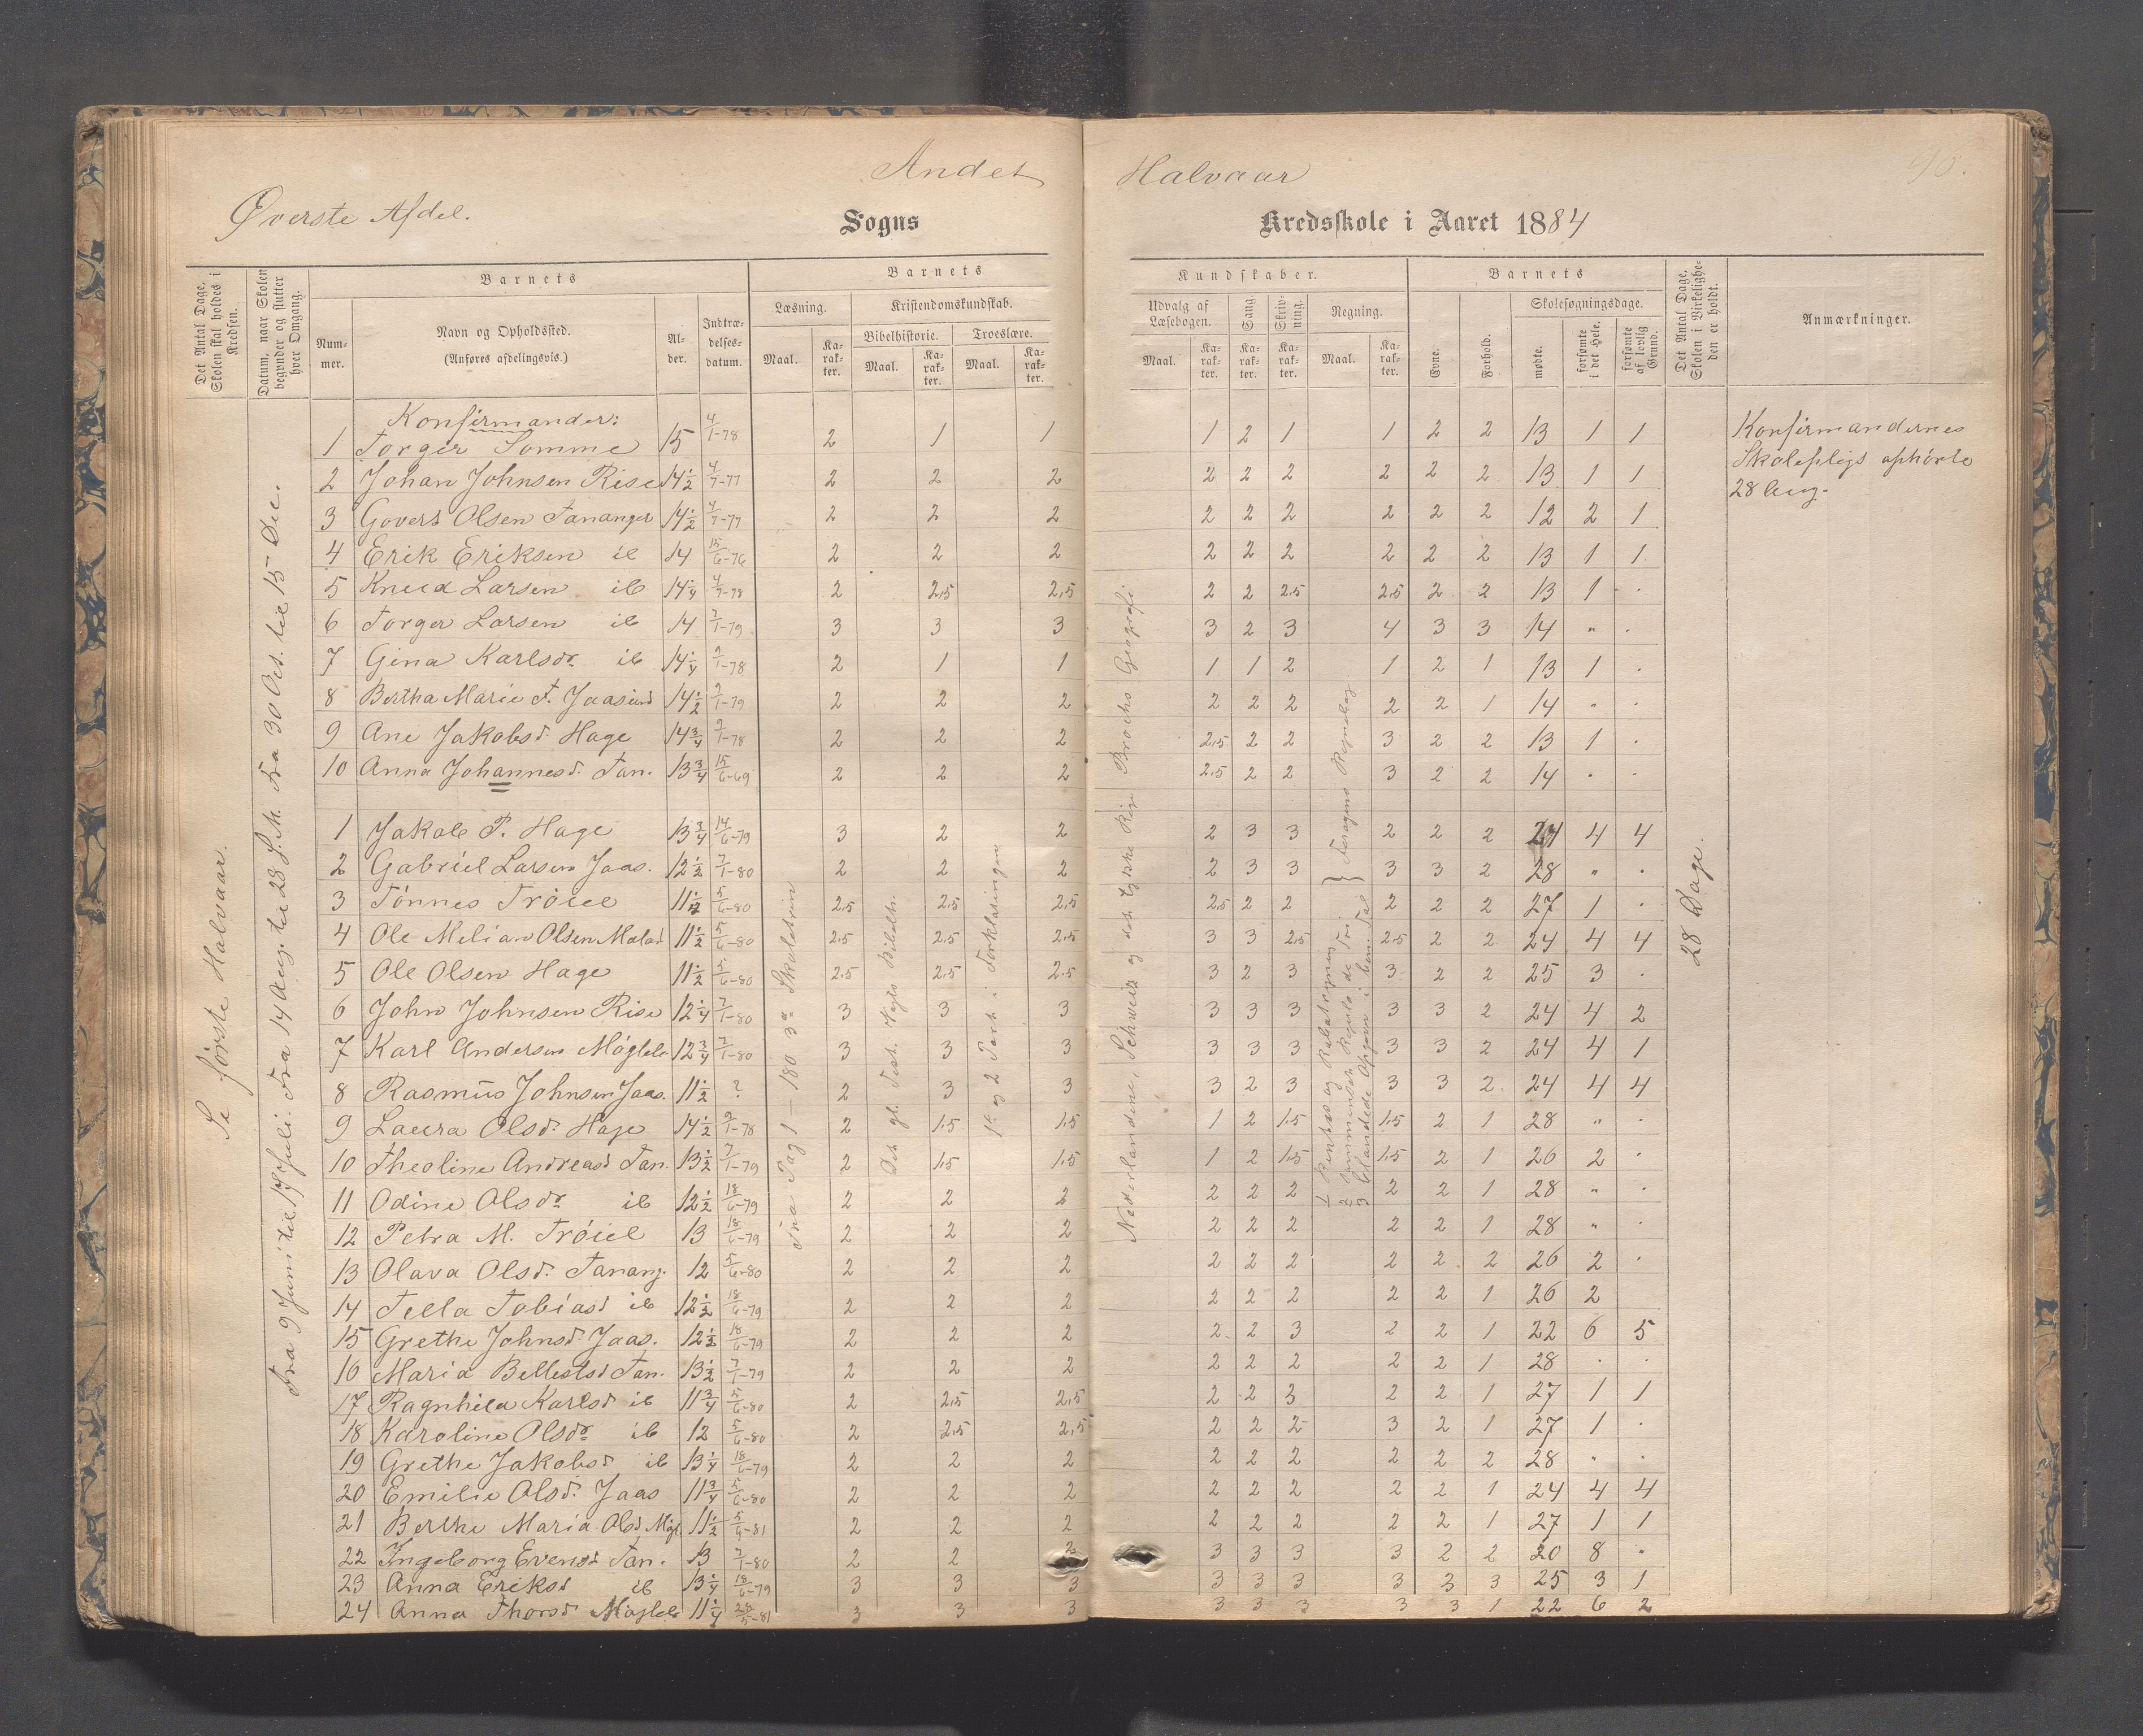 Andet Halvaar 
Øverste Afdel.
Sogns Kredsskole i Aaret 1884
Det Antal Dage, Skolen skal holdes i Kredsen.
Datum, naar Skolen begynder og slutter hver Omgang.
Barnets
Nummer.
Navn og Opholdssted.
(Anføres afdelingsvis.)
Alder.
Indtrædelsesdatum.
Barnets Kundskaber.
Læsning.
Maal. Karakter.
Kristendomskundskab.
Bibelhistorie. Troeslære.
Maal. Karakter. Maal. Karakter.
Udvalg af Læsebogen.
Maal. Karakter.
Sang. Karakter.
Skrivning. Karakter.
Regning.
Maal. Karakter.
Barnets
Evne. Forhold.
Skolesøgningsdage.
mødte. forsømte i det Hele. forsømte af lovlig Grund.
Det Antal Dage, Skolen i Virkeligheden er holdt.
Anmærkninger.
Se første Halvaar.
Fra 9 Juni til 17 Juli. Fra 14 Aug. til 28 S.M. Fra 30 Oct. til 15 Dec.
Konfirmander:
1 Torger Somme 15 4/1-78 2 1 1 1 2 1 1 2 2 13 1 1
2 Johan Johnsen Rise 14 1/2 4/7-77 2 2 2 2 2 2 2 2 2 13 1 1
3 Govert Olsen Tananger 14 1/2 4/7-77 2 2 2 2 2 2 2 2 2 12 2 1
4 Erik Eriksen ib 14 15/6-76 2 2 2 2 2 2 2 2 2 13 1 1
5 Knud Larsen ib 14 1/4 4/7-78 2 2,5 2,5 2 2 2.5 2.5 2 2 13 1 .
6 Torger Larsen ib 14 7/1-79 3 3 3 3 2 3 4 3 3 14 " .
7 Gina Karlsdr ib 14 1/4 9/1-78 2 1 1 1 1 2 1 2 1 13 1 .
8 Bertha Marie T. Jaasund 14 1/2 7/1-79 2 2 2 2 2 2 2 2 1 14 " .
9 Ane Jakobsd. Hage 14 3/4 9/1-78 2 2 2 2,5 2 2 3 2 2 13 1 .
10 Anna Johannesd. Tan. 13 3/4 15/6-69 2 2 2 2.5 2 2 3 2 2 14 " .
1 Jakob P. Hage 13 3/4 14/6-79 3 2 2 2 3 3 2 2 2 24 4 4
2 Gabriel Larsen Jaas. 12 1/2 7/1-80 2 2 2 2 3 3 3 3 2 28 " .
3 Tønnes Trøiel 11 1/2 5/6-80 2.5 2.5 2.5 2.5 2 2 2 2 2 27 1 .
4 Ole Melian Olsen 11 1/2 5/6-80 2.5 2.5 2.5 3 3 2.5 2.5 2 2 24 4 4
5 Ole Olsen Hage 11 1/2 5/6-80 2.5 2.5 2.5 3 2 3 3 2 2 25 3 .
6 John Johnsen Rise 12 1/4 7/1-80 3 3 3 3 3 3 3 3 2 24 4 2
7 Karl Andersen Møgleb. 12 3/4 7/1-80 3 3 3 3 3 3 3 3 2 24 4 1
8 Rasmus Johnsen Jaas. 11 1/2 ? 2 3 3 3 2 3 3 3 2 24 4 4
9 Laura Olsd. Hage 14 1/2 9/1-78 2 1.5 1.5 1 2 1.5 1.5 2 1 28 " .
10 Theoline Andreasd Tan. 13 1/2 7/1-79 2 1.5 1.5 1 2 1.5 1.5 2 1 26 2 .
11 Odine Olsdr ib 12 1/2 18/6-79 2 2 2 2 2 2 2 2 1 28 " .
12 Petra M. Trøiel 13 18/6-79 2 2 2 2 2 2 2 2 1 28 " .
13 Olava Olsd. Tanang. 12 5/6-80 2 2 2 2 2 2 2 2 2 26 2 .
14 Tella Tobiasd ib 12 1/2 18/6-79 2 2 2 2 2 2 2 2 1 26 2
15 Grethe Johnsd. Jaas. 12 1/2 18/6-79 2 2 2 2 2 3 2 2 1 22 6 5
16 Maria Tan. 13 1/2 7/1-79 2 2 2 2 2 2 2 2 1 28 . .
17 Ragnhild Karlsd ib 11 3/4 5/6-80 2 2,5 2,5 2 2 3 2 2 1 27 1 1
18 Karoline Olsdr ib 12 5/6-80 2 2,5 2,5 2 2 2 3 2 1 27 1 .
19 Grethe Jakobsd ib 13 1/4 18/6-79 2 2 2 2 2 2 2 2 2 28 . .
20 Emilie Olsd. Jaas 11 3/4 5/6-80 2 2 2 2 2 2 2 2 1 24 4 4
21 Berthe Maria Olsd Møgl. 11 1/2 5/6-81 2 2 2 2 2 2 2 2 1 27 1 1
22 Ingeborg Evensd Tan. 13 7/1-80 2 2 2 3 3 3 3 2 2 20 8 "
23 Anna Eriksd ib 13 1/4 18/6-79 3 3 3 3 3 3 3 3 3 25 3 1
24 Anna Thorsd Møgleb 11 1/4 3 3 3 3 3 3 3 3 1 22 6 2
Fra Pag 1 — 180 3die Skoletrin
Det gl. Test. Vogts Bibelh.
1ste og 2 Part i Forklaringen
Nederlandene, Schweiz og det tyske Rige Brochs Geografi
1 Rentes og Rabatregning
2 Sammensat Reguladetri
3 blandede Opgaver i hen. Tal
} Foragens Regnebog.
28 Dage.
Konfirmandernes
Skolepligt ophørte
28 Aug.